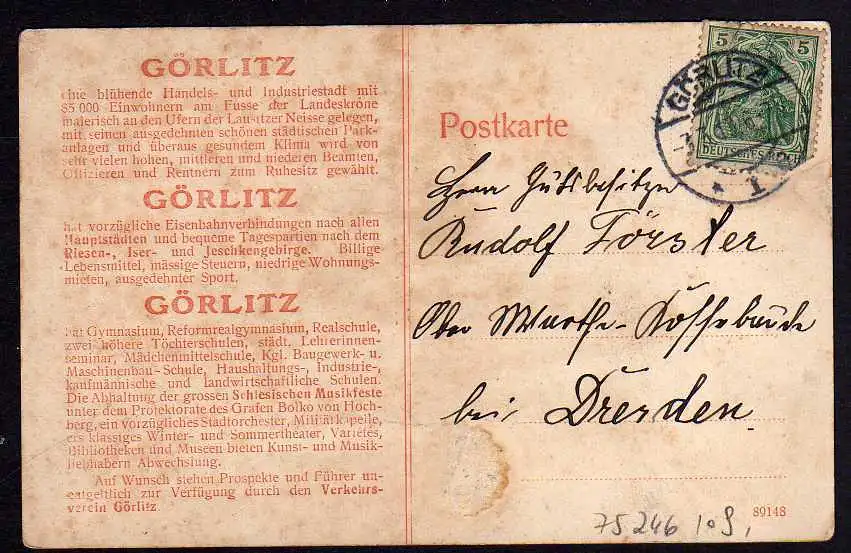 GÖRLITZ
eine blühende Handels- und Industriestadt mit
85 000 Einwohnern am Fusse der Landeskrone
malerisch an den Ufern der Lausitzer Neisse gelegen,
mit seinen ausgedehnten schönen städtischen Park-
anlagen und überaus gesundem Klima wird von
sehr vielen hohen, mittleren und niederen Beamten,
Offizieren und Rentnern zum Ruhesitz gewählt.
GÖRLITZ
hat vorzügliche Eisenbahnverbindungen nach allen
Hauptstädten und bequeme Tagespartien nach dem
Riesen-, Iser- und Jeschkengebirge. Billige
Lebensmittel, mässige Steuern, niedrige Wohnungs-
mieten, ausgedehnter Sport.
GÖRLITZ
hat Gymnasium, Reformrealgymnasium, Realschule,
zwei höhere Töchterschulen, städt. Lehrerinnen-
seminar, Mädchenmittelschule, Kgl. Baugewerk- u.
Maschinenbau-Schule, Haushaltungs-, Industrie-,
kaufmännische und Landwirtschaftliche Schulen.
Die Abhaltung der grossen Schlesischen Musikfeste
unter dem Protektorate des Grafen Bolko von Hoch-
berg, ein vorzügliches Stadtorchester, Militärkapelle,
erstklassiges Winter- und Sommertheater, Varietés,
Bibliotheken und Museen bieten Kunst- und Musik-
liebhabern Abwechslung.
Auf Wunsch stehen Prospekte und Führer un-
entgeltlich zur Verfügung durch den Verkehrs-
verein Görlitz
Postkarte
5 5
DEUTSCHES REICH
GÖRLITZ
* 1
Herrn Gutsbesitzer
Rudolf Förster
Ober Wartha-Cossebaude
bei Dresden
75246 10 9,
89148